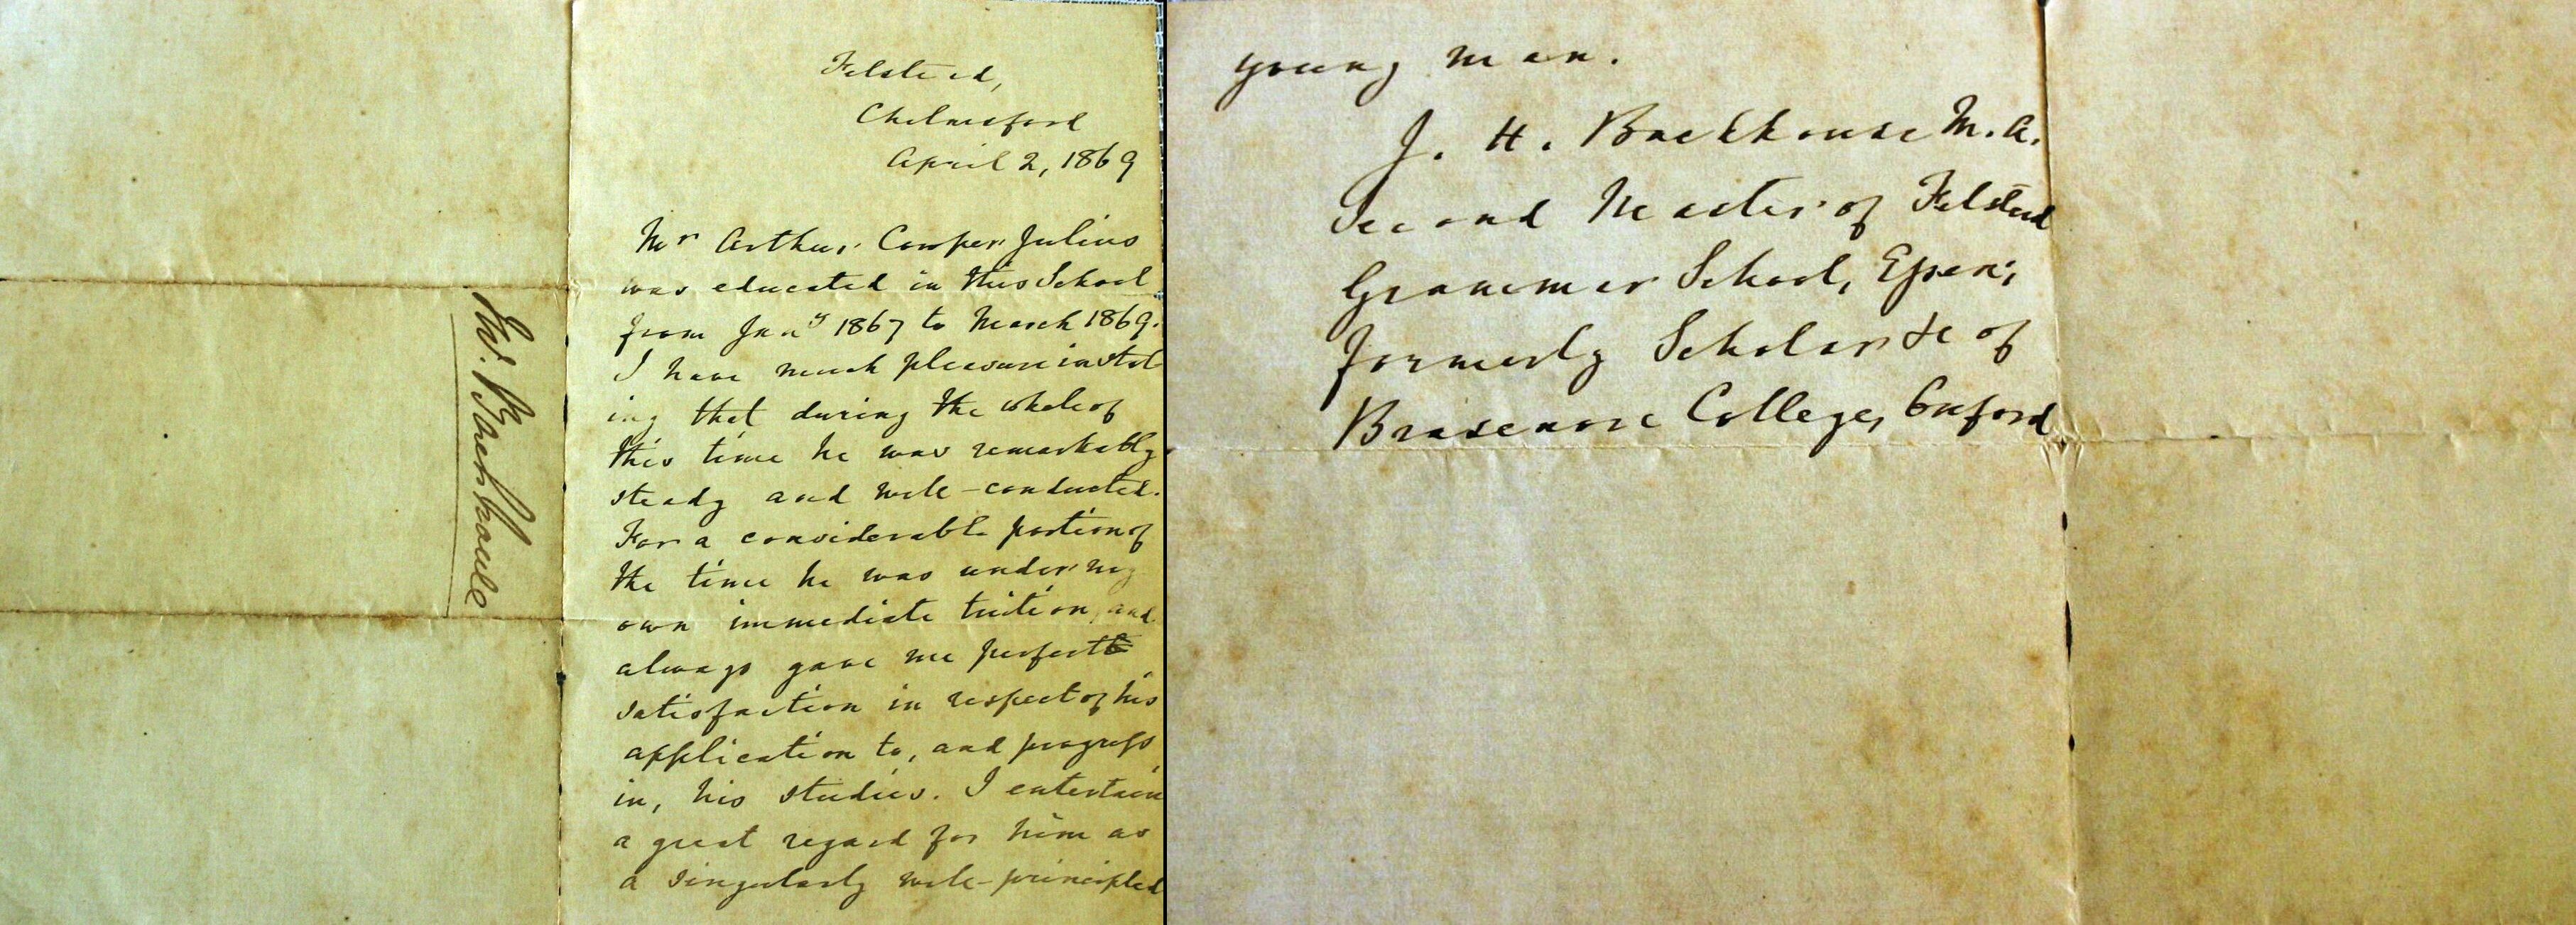 Felsted,
Chelmsford
April 2, 1869
Mr Arthur Cowper Julius
was educated in this School
from Jany 1867 to March 1869.
I have much pleasure in stat
ing that during the whole of
this time he was remarkably
steady and well-conducted.
For a considerable portion of
the time he was under my
own immediate tuition, and
always gave me perfect
satisfaction in respect of his
application to, and progress
in, his studies. I entertain
a great regard for him as
a singularly well-principled
Backhouse
young man.
J. H. Backhouse M.A.
Second Master of Felsted
Grammar School, Essex;
formerly Scholar &c of
Brasenose College, Oxford